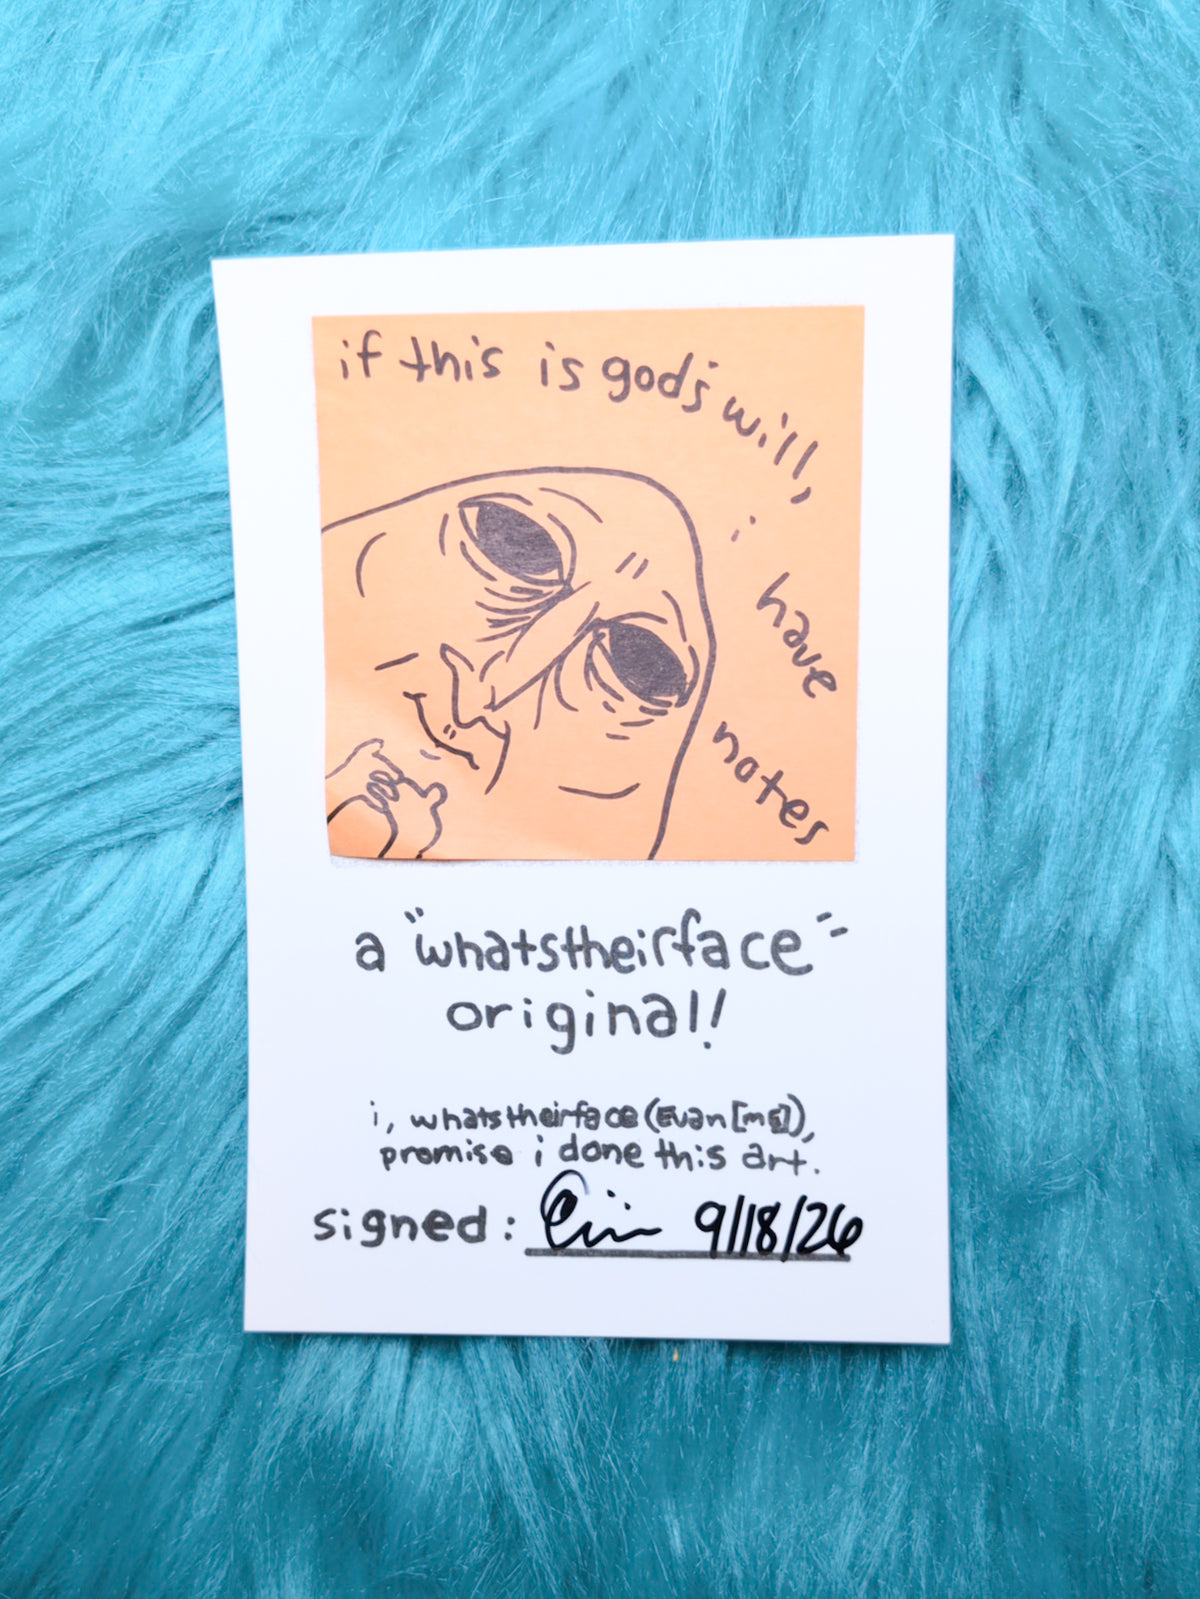 if this is god's will,
i have notes
a "whatstheirface"
original!
i, whatstheirface (Evan [me]),
promise i done this art.
signed: 9/18/26